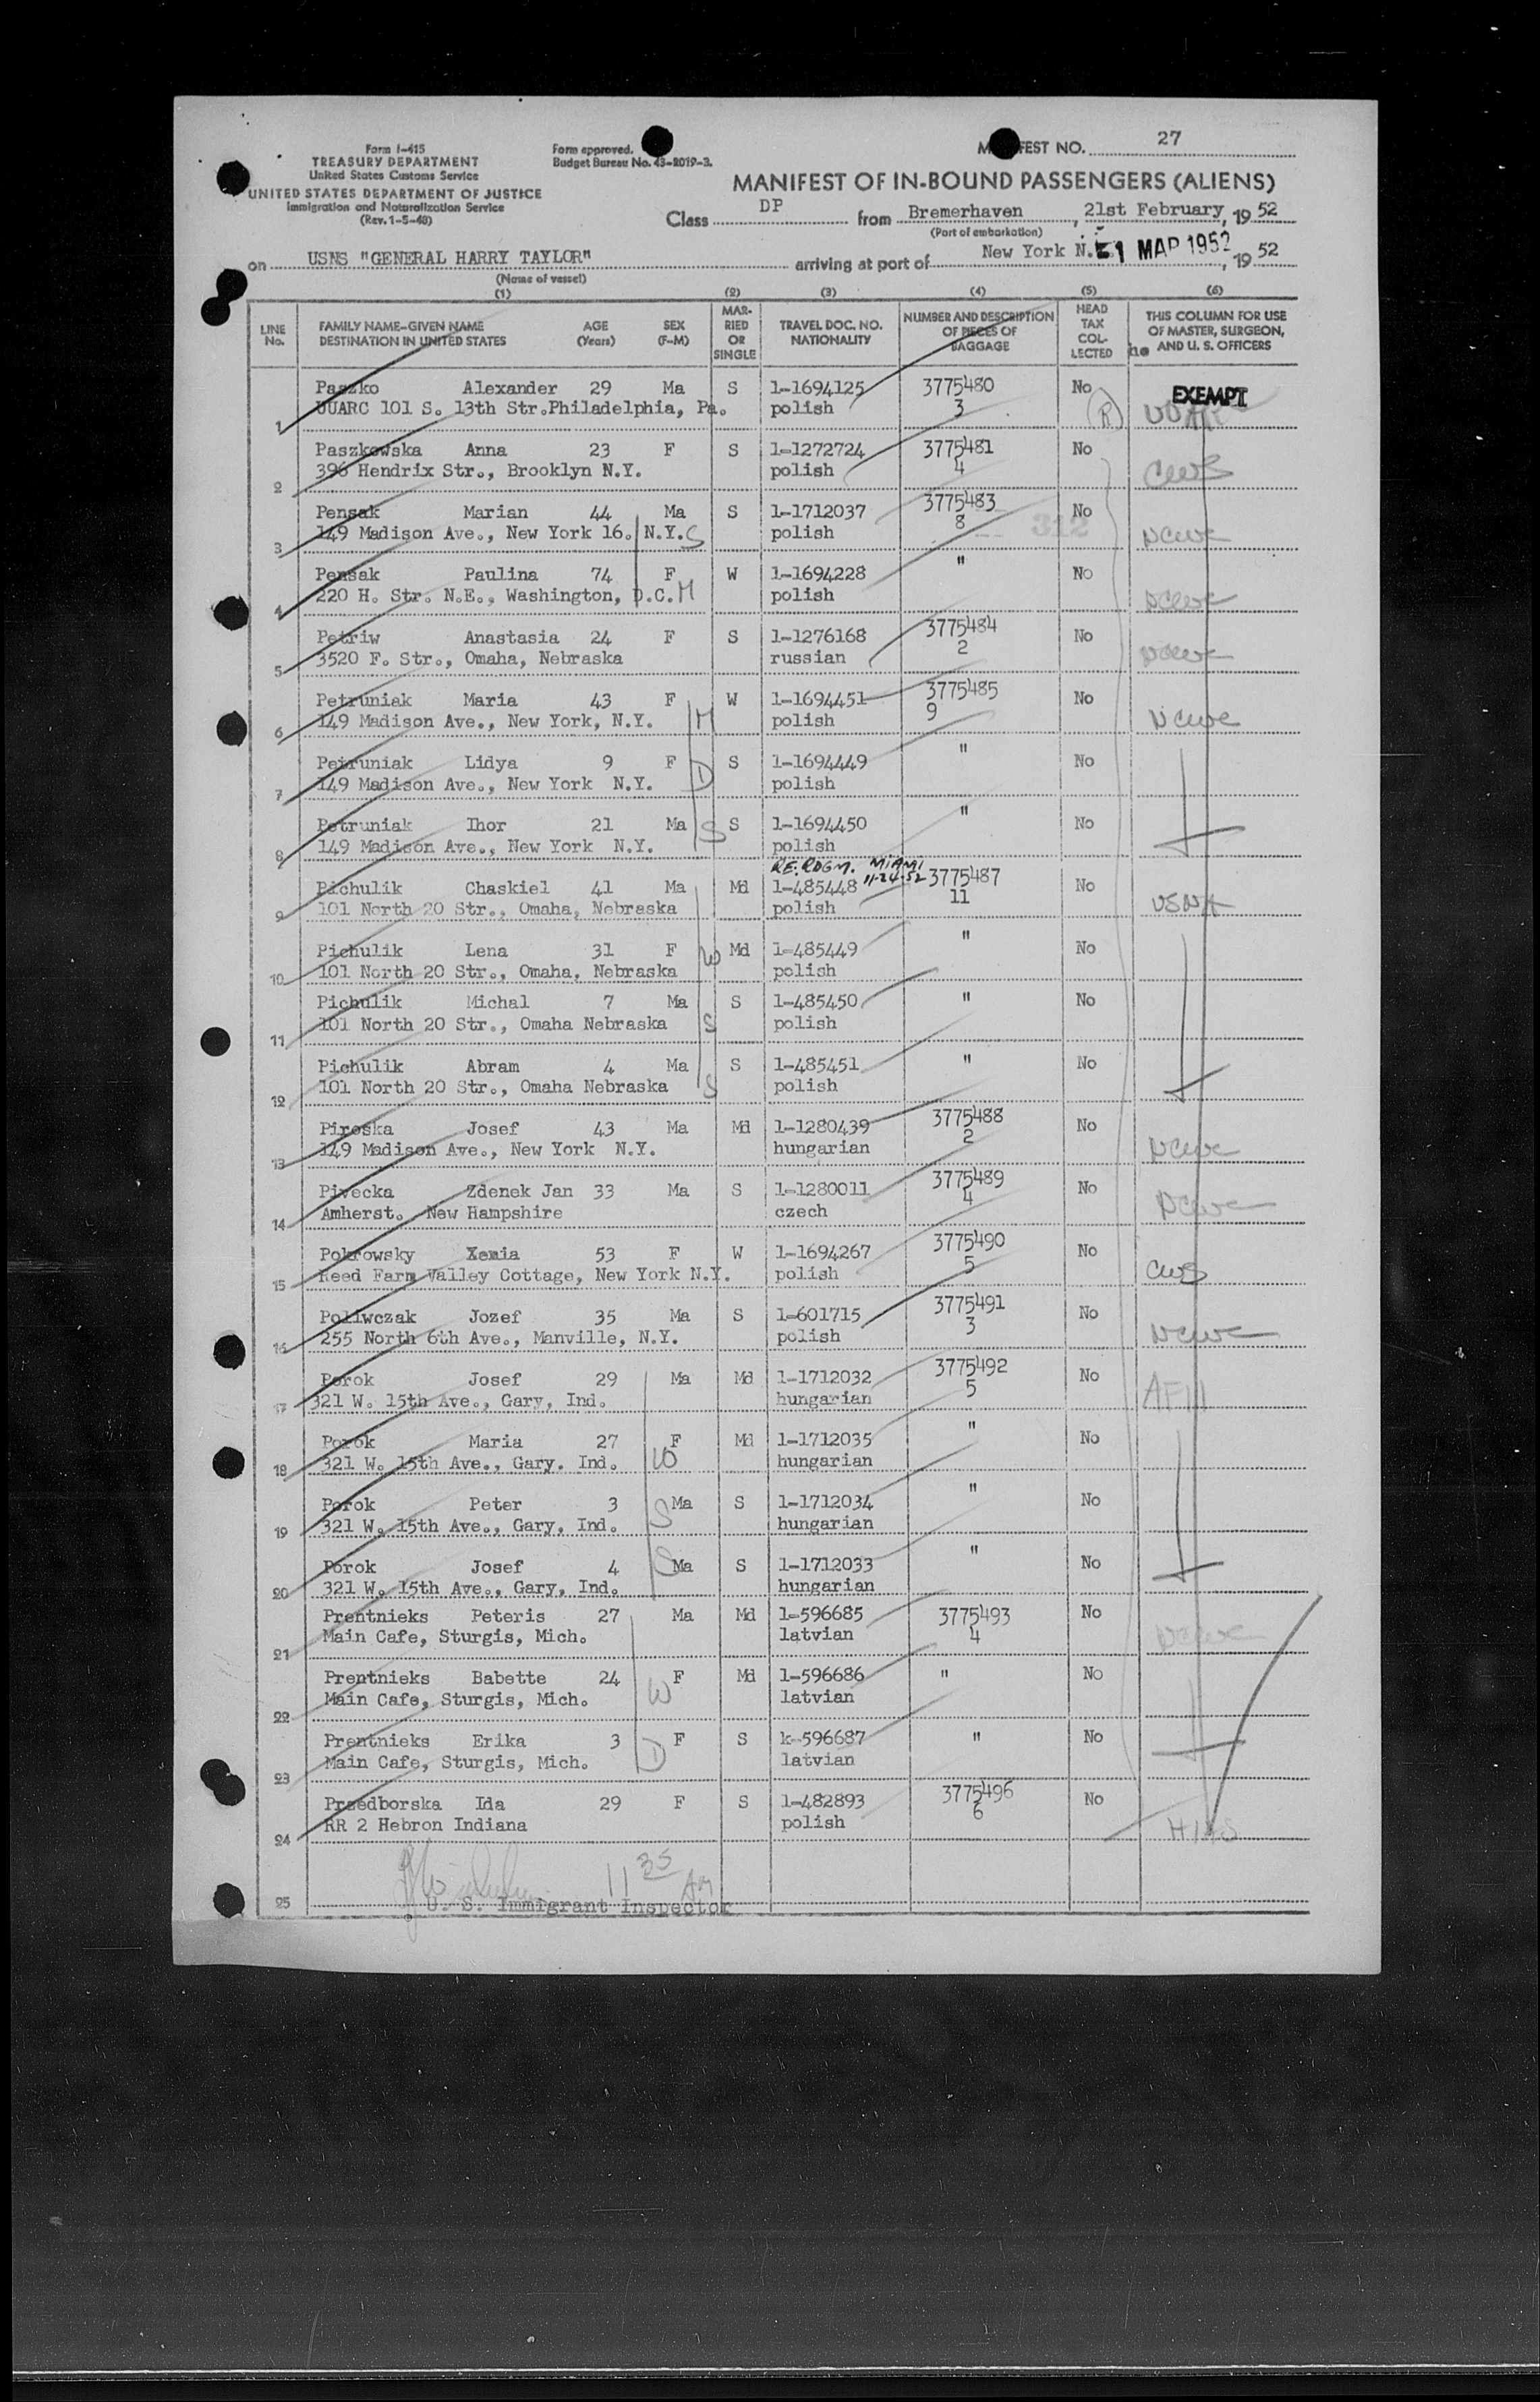 Form I-415
TREASURY DEPARTMENT
United States Customs Service
UNITED STATES DEPARTMENT OF JUSTICE
Immigration and Naturalization Service
(Rev. 1-5-48)
Form approved.
Budget Bureau No. 43-R019-3.
MANIFEST NO. 27
MANIFEST OF IN-BOUND PASSENGERS (ALIENS)
Class DP from Bremerhaven, 21st February, 1952
(Port of embarkation)
on USNS "GENERAL HARRY TAYLOR" arriving at port of New York N. 1 MAR 1952, 1952
(Name of vessel)
(1) (2) (3) (4) (5) (6)
LINE No. FAMILY NAME-GIVEN NAME DESTINATION IN UNITED STATES AGE (Years) SEX (F-M) MARRIED OR SINGLE TRAVEL DOC. NO. NATIONALITY NUMBER AND DESCRIPTION OF PIECES OF BAGGAGE HEAD TAX COLLECTED THIS COLUMN FOR USE OF MASTER, SURGEON, AND U. S. OFFICERS
Paszko Alexander 29 Ma S 1-1694125 3775480 No EXEMPT
1 UUARC 101 S. 13th Str.Philadelphia, Pa. polish 3 (R)
Paszkowska Anna 23 F S 1-1272724 3775481 No
2 396 Hendrix Str., Brooklyn N.Y. polish 4 CWS
Pensak Marian 44 Ma S 1-1712037 3775483 No
3 149 Madison Ave., New York 16. N.Y. S polish 8 312 NCWC
Pensak Paulina 74 F W 1-1694228 " No
4 220 H. Str. N.E., Washington, D.C. M polish NCWC
Petriw Anastasia 24 F S 1-1276168 3775484 No
5 3520 F. Str., Omaha, Nebraska russian 2 NCWC
Petruniak Maria 43 F W 1-1694451 3775485 No
6 149 Madison Ave., New York, N.Y. M polish 9 NCWC
Petruniak Lidya 9 F S 1-1694449 " No
7 149 Madison Ave., New York N.Y. D polish
Petruniak Ihor 21 Ma S S 1-1694450 " No
8 149 Madison Ave., New York N.Y. polish
RE. RDGM. MIAMI 11-24-52
Pichulik Chaskiel 41 Ma Md 1-485448 3775487 No
9 101 North 20 Str., Omaha, Nebraska polish 11 USNA
Pichulik Lena 31 F W Md 1-485449 " No
10 101 North 20 Str., Omaha, Nebraska polish
Pichulik Michal 7 Ma S 1-485450 " No
11 101 North 20 Str., Omaha Nebraska S polish
Pichulik Abram 4 Ma S 1-485451 " No
12 101 North 20 Str., Omaha Nebraska S polish
Piroska Josef 43 Ma Md 1-1280439 3775488 No
13 149 Madison Ave., New York N.Y. hungarian 2 NCWC
Pivecka Zdenek Jan 33 Ma S 1-1280011 3775489 No
14 Amherst. New Hampshire czech 4 NCWC
Pokrowsky Xemia 53 F W 1-1694267 3775490 No
15 Reed Farm Valley Cottage, New York N.Y. polish 5 CWS
Poliwczak Jozef 35 Ma S 1-601715 3775491 No
16 255 North 6th Ave., Manville, N.Y. polish 3 NCWC
Porok Josef 29 Ma Md 1-1712032 3775492 No
17 321 W. 15th Ave., Gary, Ind. hungarian 5
Porok Maria 27 F Md 1-1712035 " No
18 321 W. 15th Ave., Gary. Ind. W hungarian
Porok Peter 3 Ma S 1-1712034 " No
19 321 W. 15th Ave., Gary, Ind. S hungarian
Porok Josef 4 Ma S 1-1712033 " No
20 321 W. 15th Ave., Gary, Ind. S hungarian
Prentnieks Peteris 27 Ma Md 1-596685 3775493 No
21 Main Cafe, Sturgis, Mich. latvian 4 NCWC
Prentnieks Babette 24 F Md 1-596686 " No
22 Main Cafe, Sturgis, Mich. W latvian
Prentnieks Erika 3 F S k-596687 " No
23 Main Cafe, Sturgis, Mich. D latvian
Przedborska Ida 29 F S 1-482893 3775496 No
24 RR 2 Hebron Indiana polish 6 HIAS
11 35 AM
25 U. S. Immigrant Inspector